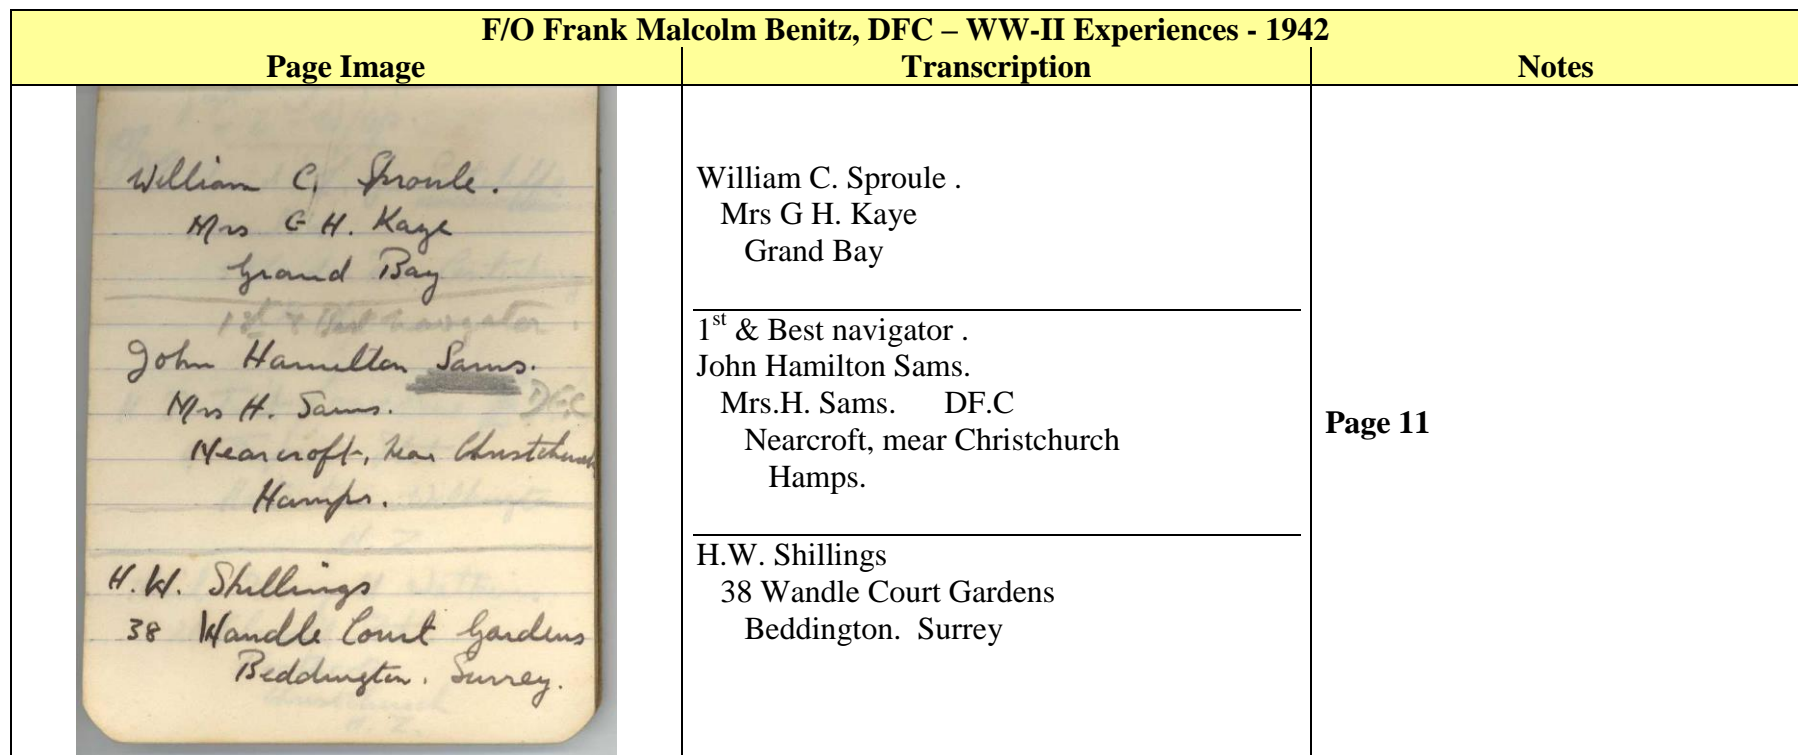 F/O Frank Malcolm Benitz, DFC – WW-II Experiences - 1942
Page Image
Transcription
Notes
William C. Sproule.
Mrs G H. Kaye
Grand Bay
1st & Best navigator.
John Hamilton Sams.
Mrs H. Sams. DFC
Nearcroft, Near Christchurch
Hamps.
H.W. Shillings
38 Wandle Court Gardens
Beddington. Surrey.
William C. Sproule .
Mrs G H. Kaye
Grand Bay
1st & Best navigator .
John Hamilton Sams.
Mrs.H. Sams. DF.C
Nearcroft, mear Christchurch
Hamps.
H.W. Shillings
38 Wandle Court Gardens
Beddington. Surrey
Page 11